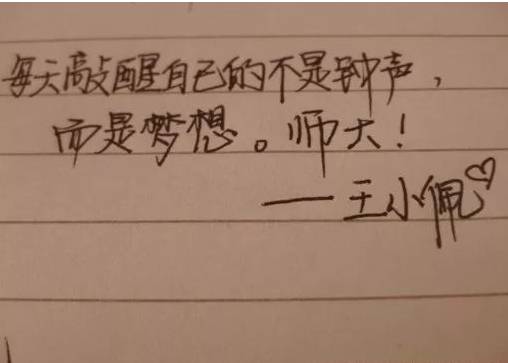 每天敲醒自己的不是钟声，
而是梦想。师大！
——王小佩♡